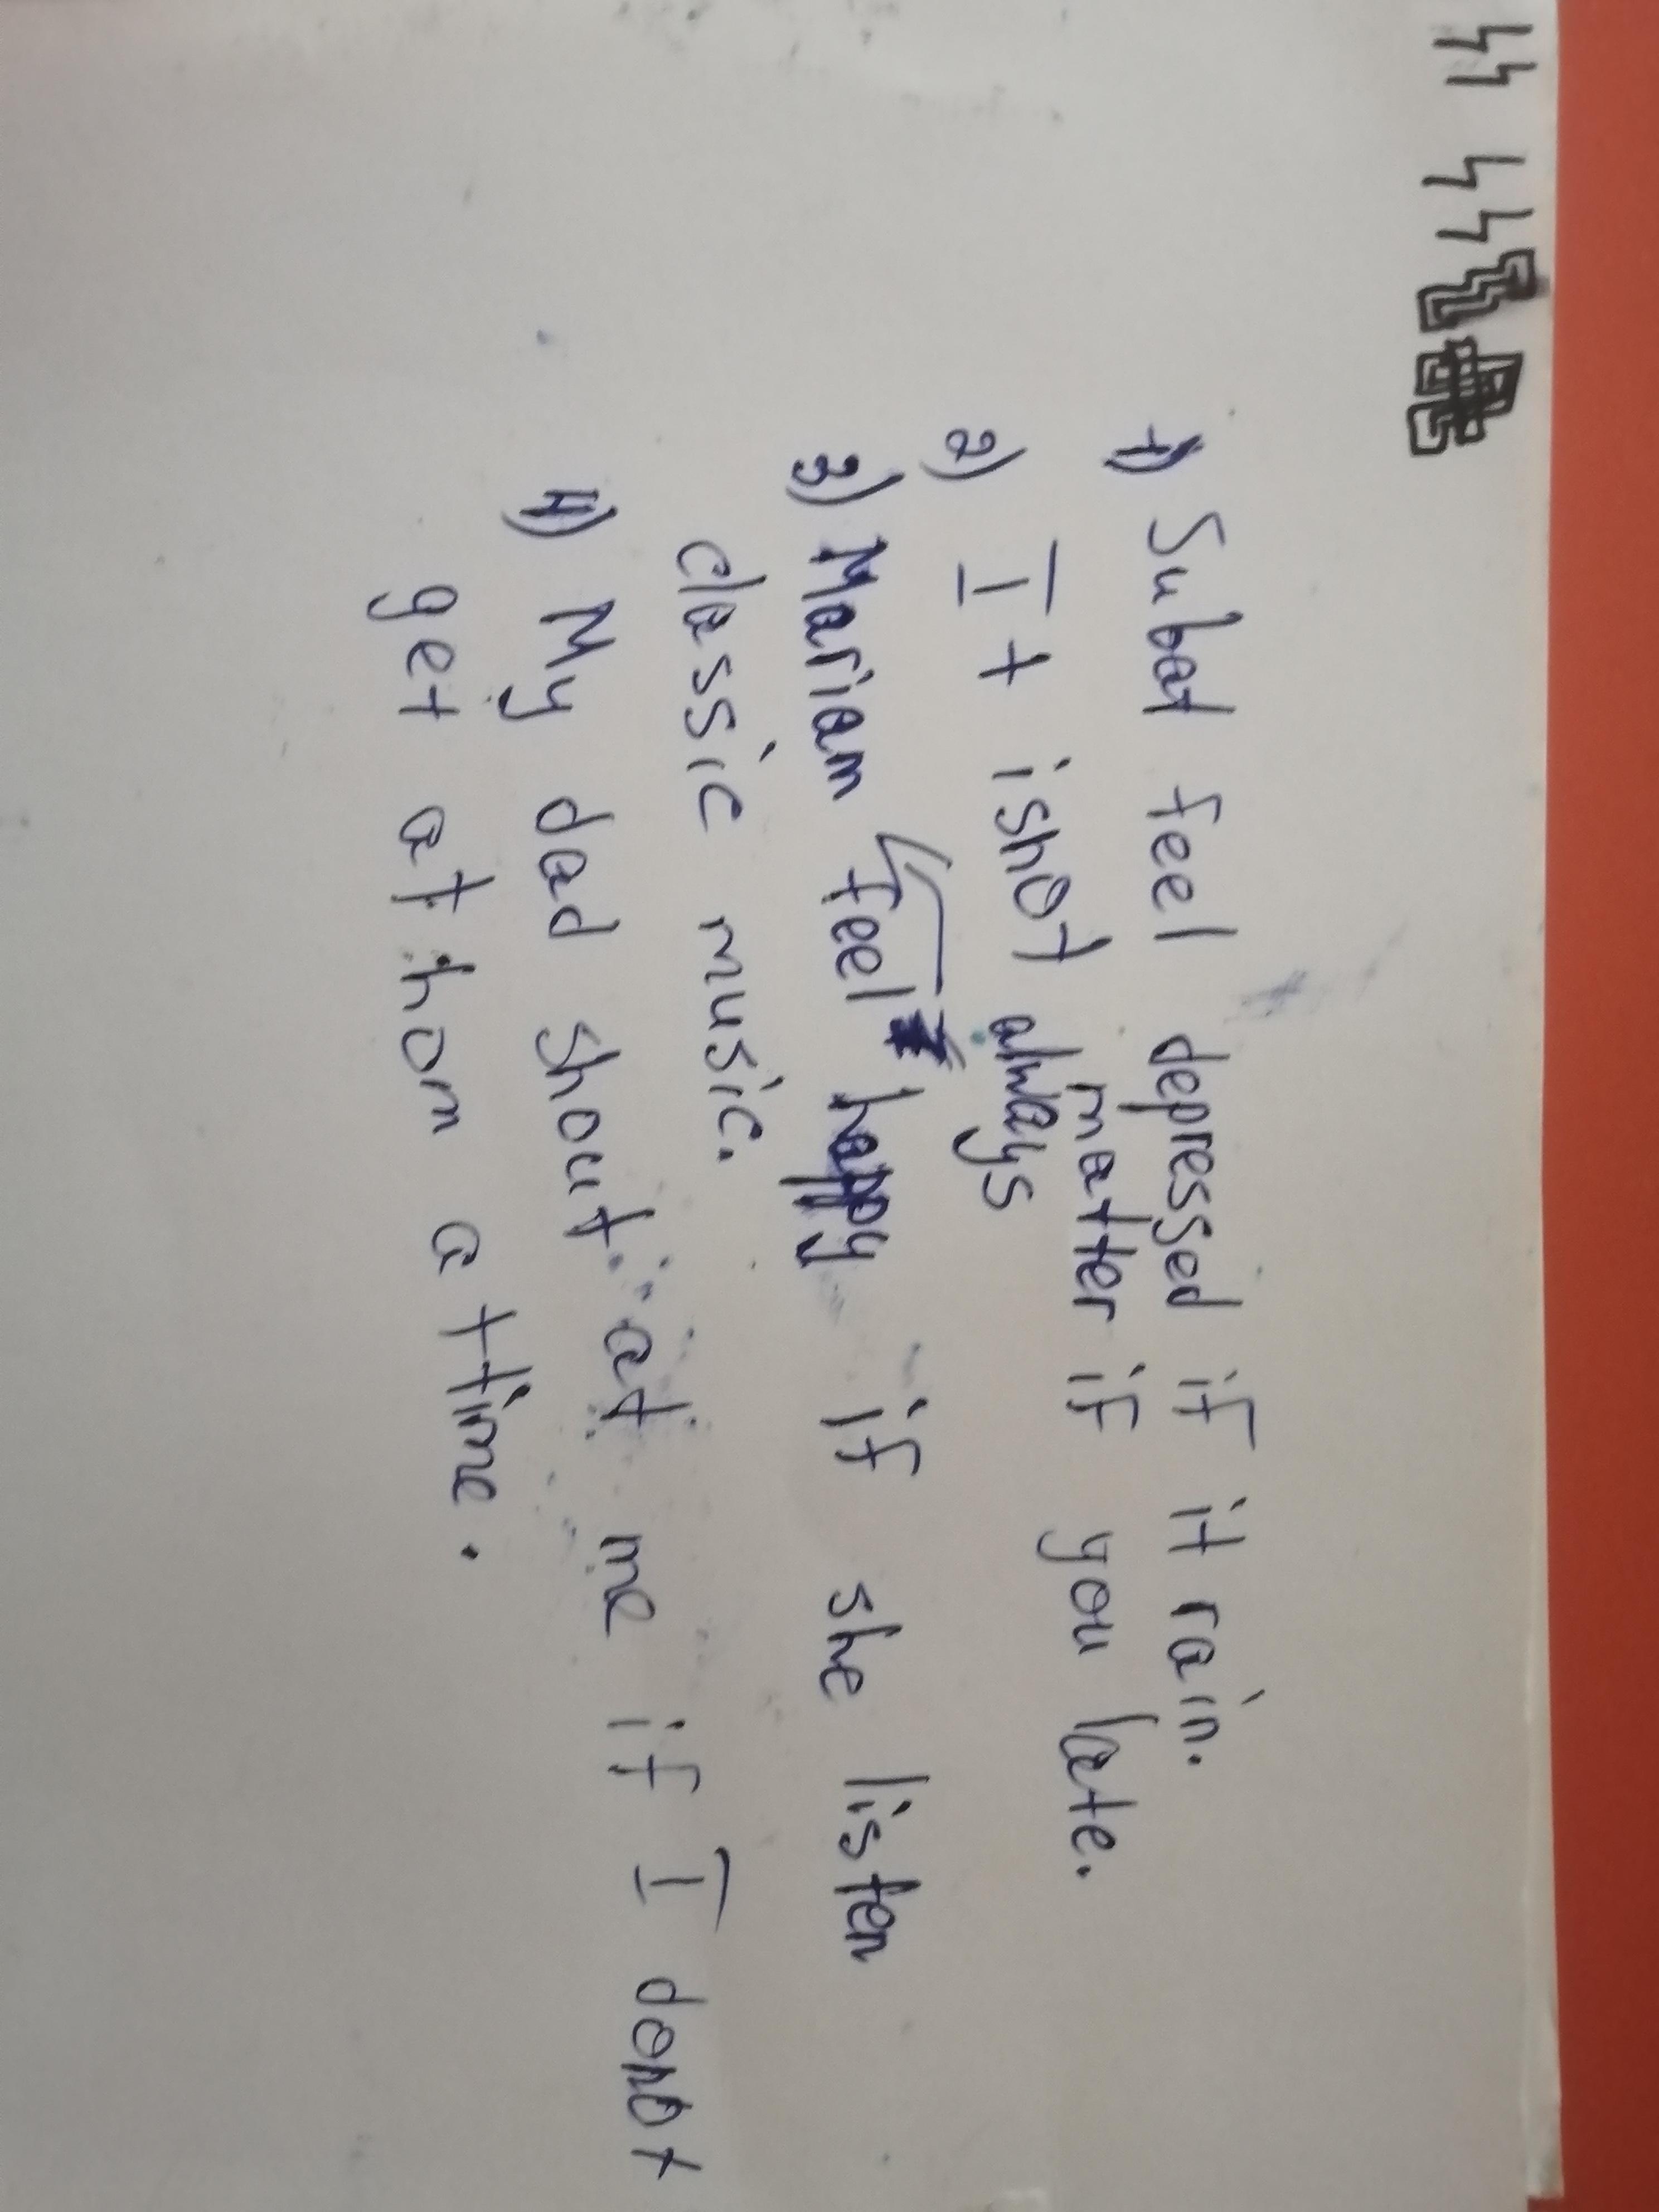 1) Subat feel depressed if it rain.
2) It isnot always matter if you late.
3) Mariam feel happy if she listen
classic music.
4) My dad shout at me if I donot
get at hom a ttime.